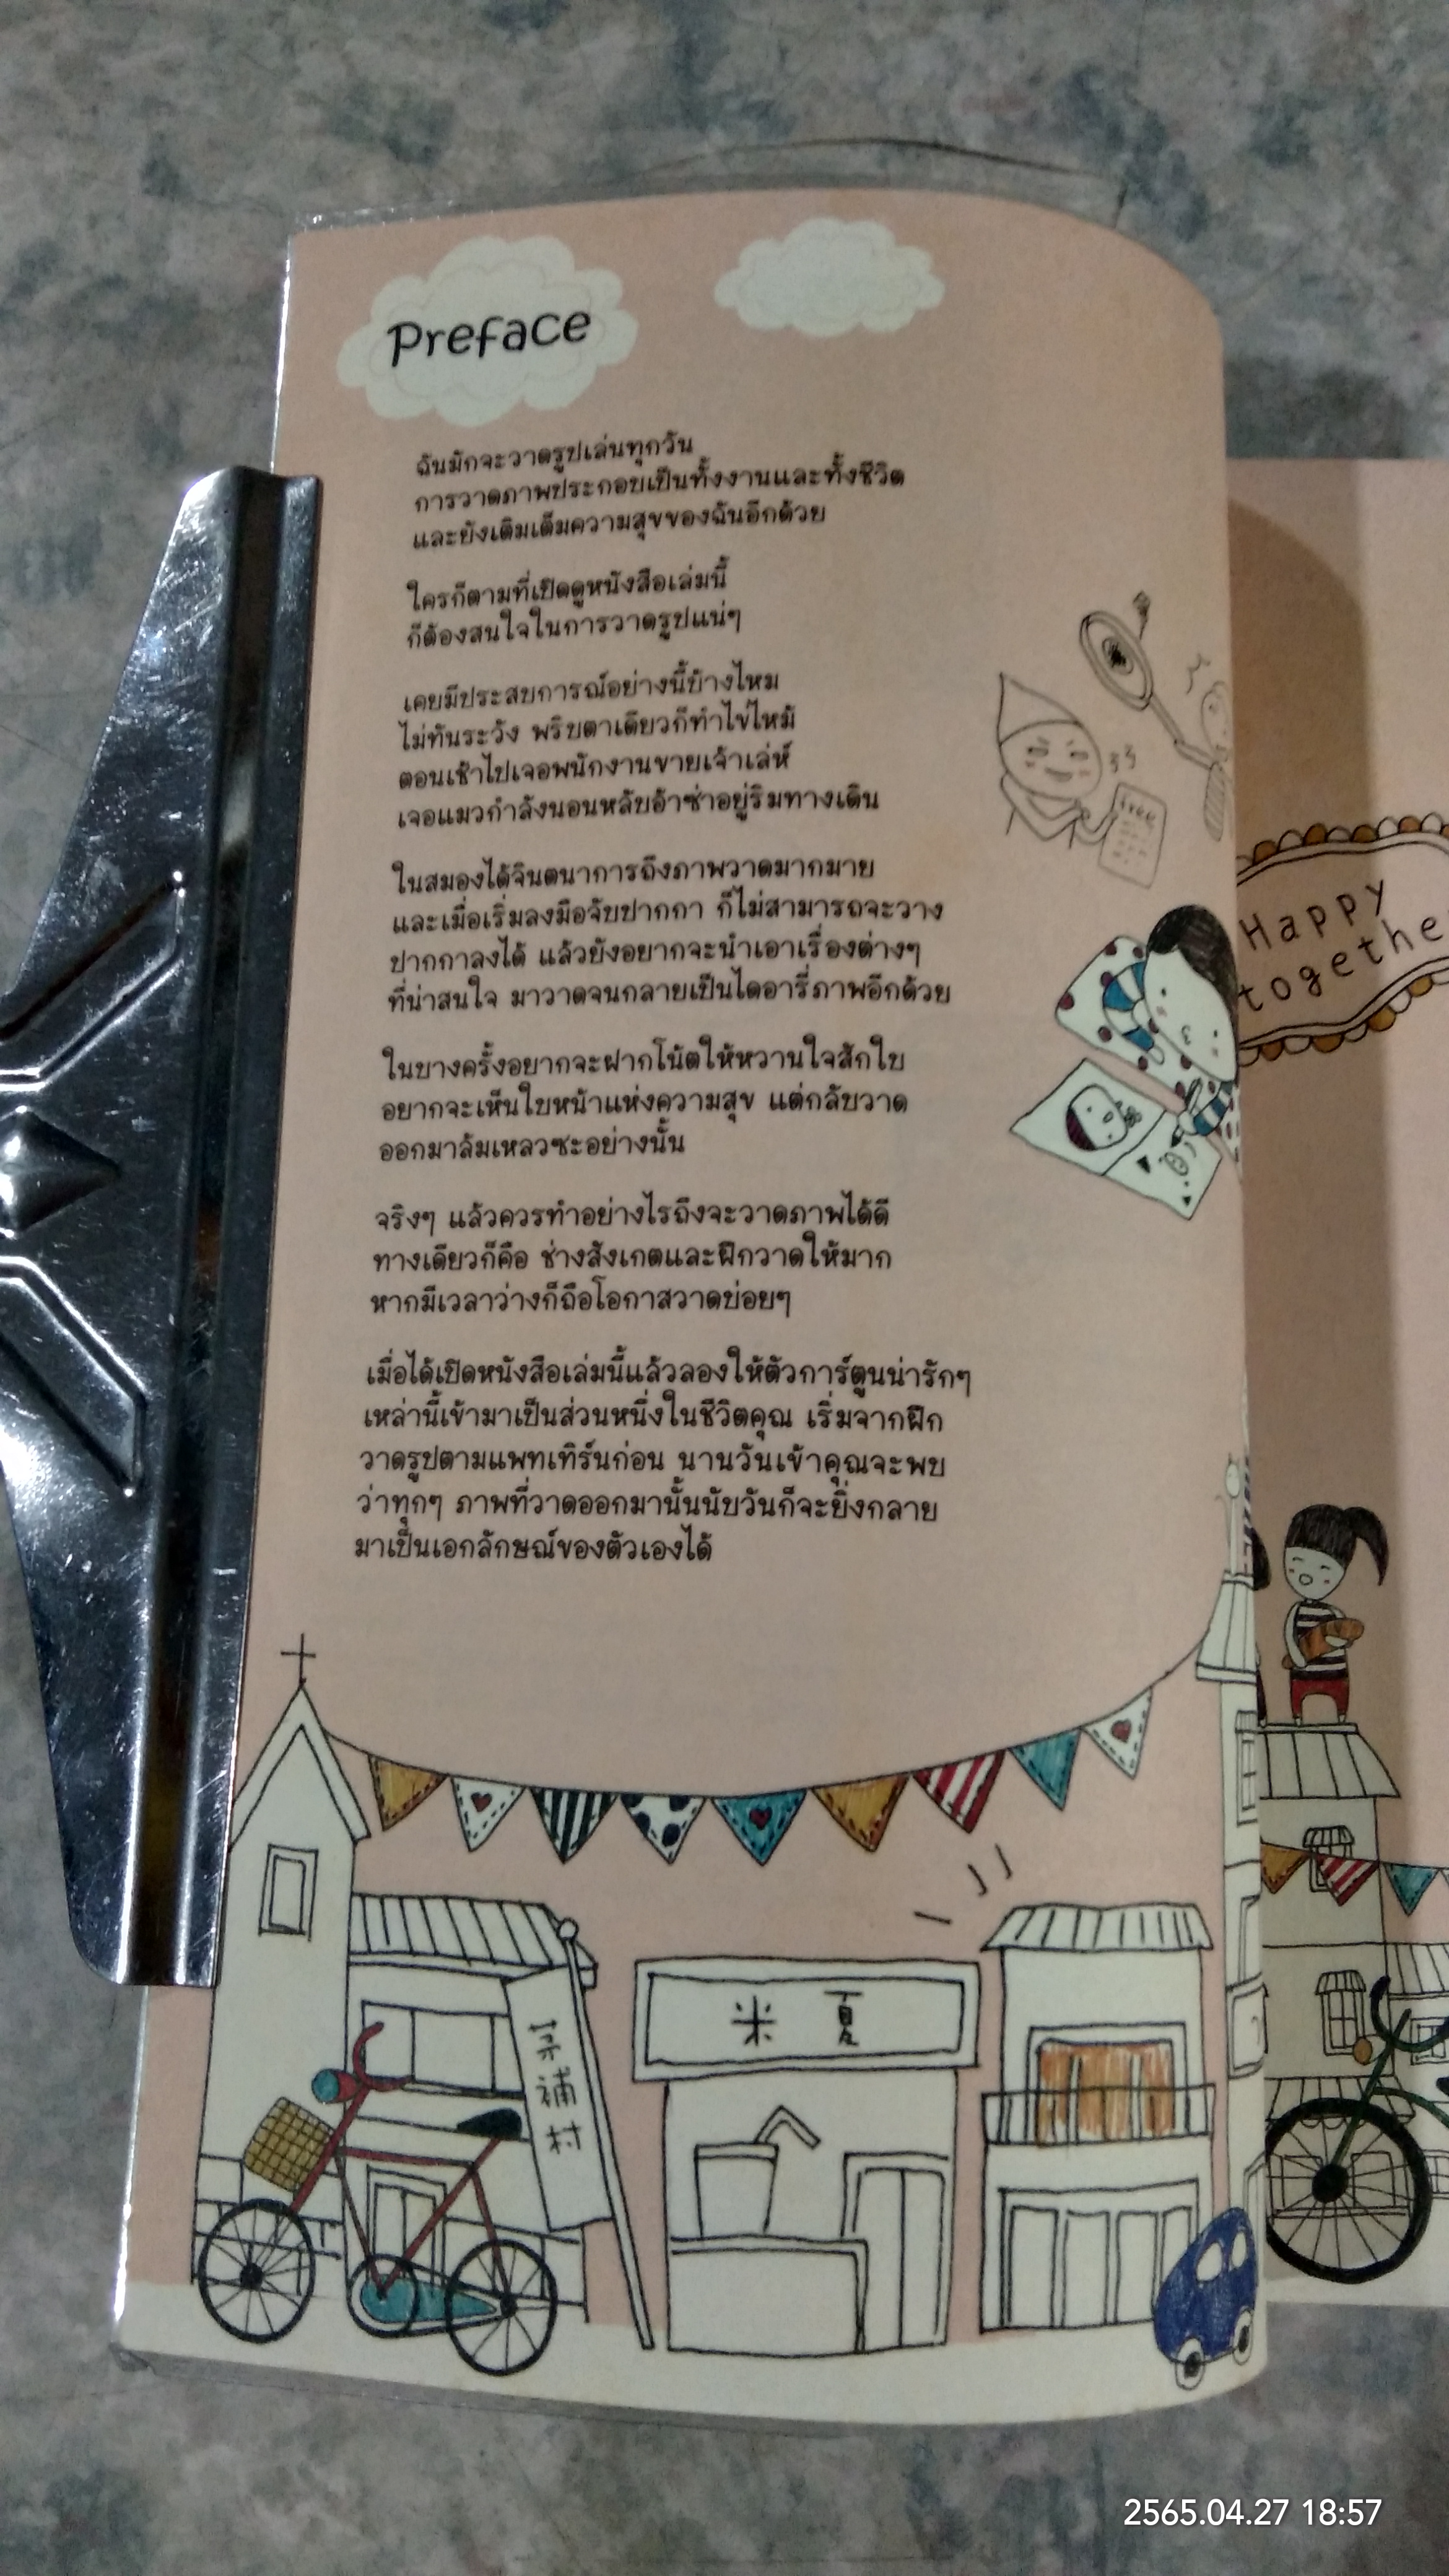 Preface
ฉันมักจะวาดรูปเล่นทุกวัน
การวาดภาพประกอบเป็นทั้งงานและทั้งชีวิต
และยังเติมเต็มความสุขของฉันอีกด้วย
ใครก็ตามที่เปิดดูหนังสือเล่มนี้
ก็ต้องสนใจในการวาดรูปแน่ๆ
เคยมีประสบการณ์อย่างนี้บ้างไหม
ไม่ทันระวัง พริบตาเดียวก็ทำไข่ไหม้
ตอนเช้าไปเจอพนักงานขายเจ้าเล่ห์
เจอแมวกำลังนอนหลับอ้าซ่าอยู่ริมทางเดิน
ในสมองได้จินตนาการถึงภาพวาดมากมาย
และเมื่อเริ่มลงมือจับปากกา ก็ไม่สามารถจะวาง
ปากกาลงได้ แล้วยังอยากจะนำเอาเรื่องต่างๆ
ที่น่าสนใจ มาวาดจนกลายเป็นไดอารี่ภาพอีกด้วย
ในบางครั้งอยากจะฝากโน้ตให้หวานใจสักใบ
อยากจะเห็นใบหน้าแห่งความสุข แต่กลับวาด
ออกมาล้มเหลวซะอย่างนั้น
จริงๆ แล้วควรทำอย่างไรถึงจะวาดภาพได้ดี
ทางเดียวก็คือ ช่างสังเกตและฝึกวาดให้มาก
หากมีเวลาว่างก็ถือโอกาสวาดบ่อยๆ
เมื่อได้เปิดหนังสือเล่มนี้แล้วลองให้ตัวการ์ตูนน่ารักๆ
เหล่านี้เข้ามาเป็นส่วนหนึ่งในชีวิตคุณ เริ่มจากฝึก
วาดรูปตามแพทเทิร์นก่อน นานวันเข้าคุณจะพบ
ว่าทุกๆ ภาพที่วาดออกมานั้นนับวันก็จะยิ่งกลาย
มาเป็นเอกลักษณ์ของตัวเองได้
free
Happy
togethe
米 夏
補
村
2565.04.27 18:57